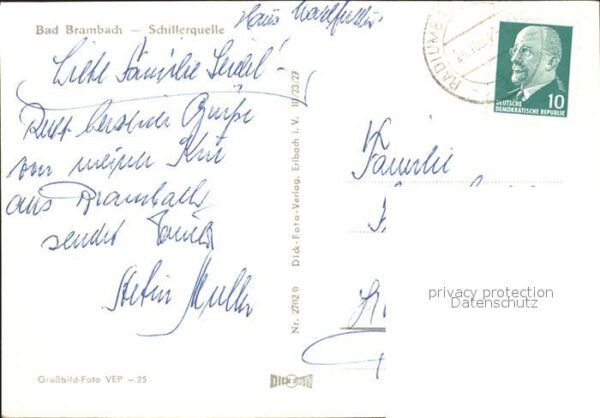 Bad Brambach — Schillerquelle
Haus
Liebe Familie Seidel!
Recht herzliche Grüße
von meiner Kur
aus Brambach
sendet
Müller
Großbild-Foto VEP -.25
Nr. 2702 0 Dick-Foto-Verlag, Erlbach i. V. III/23/27
DICK FOTO
RADIUM
10
DEUTSCHE
DEMOKRATISCHE REPUBLIK
Familie
privacy protection
Datenschutz